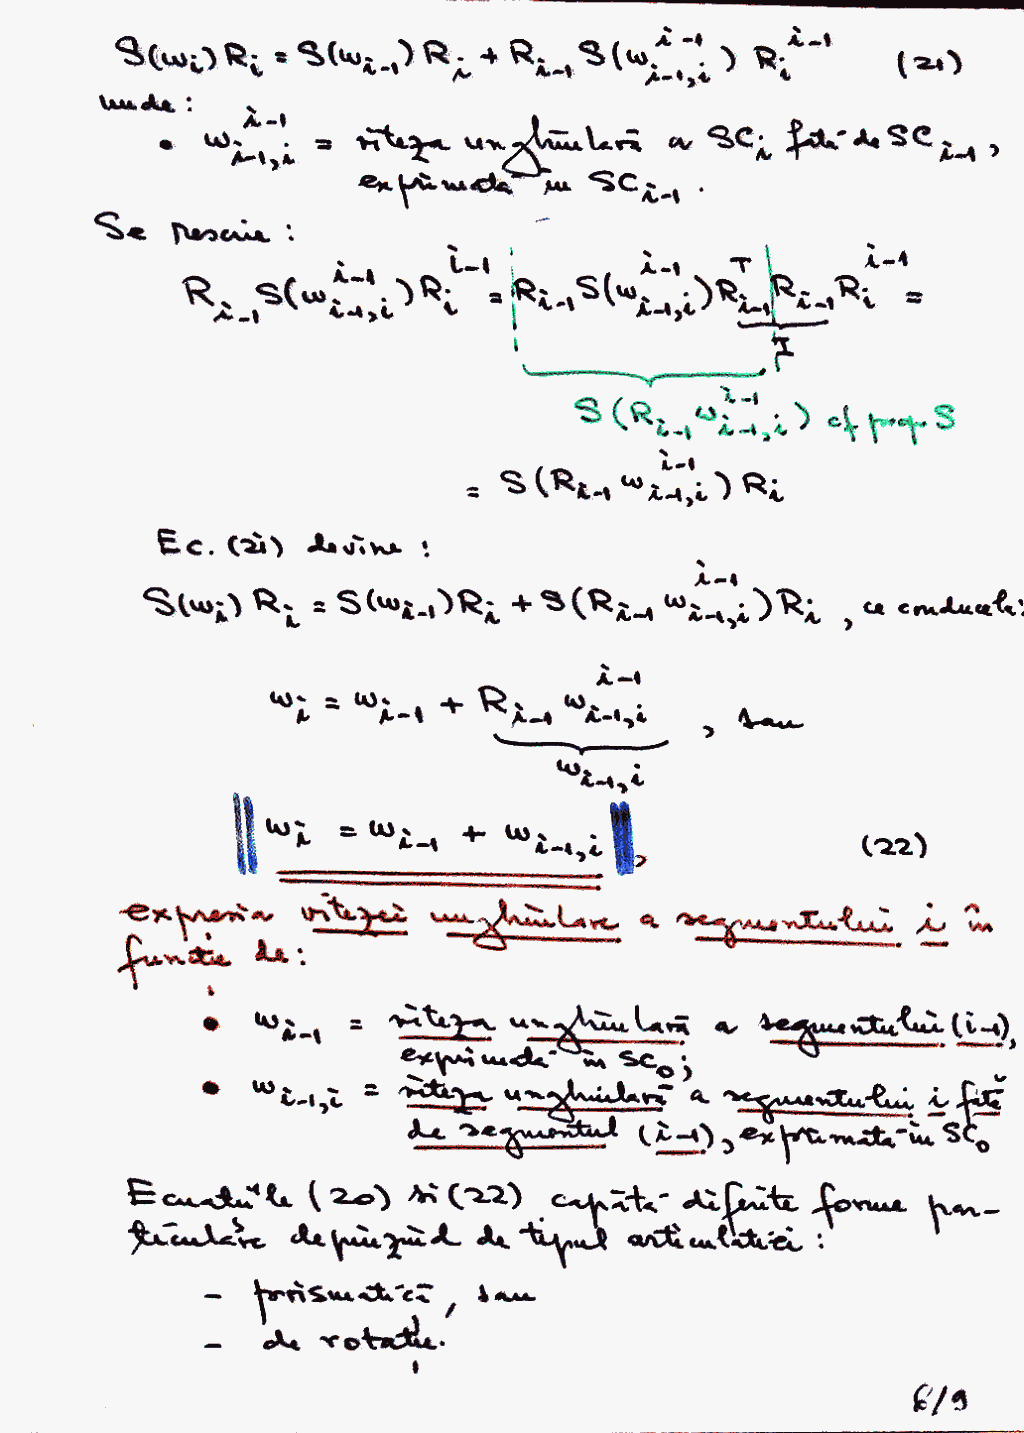 S(ωi) Ri = S(ωi-1) Ri + Ri-1 S(ω^{i-1}_{i-1,i}) R^{i-1}_i (21)
unde:
• ω^{i-1}_{i-1,i} = viteza unghiulară a SCi față de SCi-1,
exprimată în SCi-1.
Se rescrie:
Ri-1 S(ω^{i-1}_{i-1,i}) R^{i-1}_i = Ri-1 S(ω^{i-1}_{i-1,i}) R^T_{i-1} Ri-1 R^{i-1}_i =
I
S(Ri-1 ω^{i-1}_{i-1,i}) cf prop. S
= S(Ri-1 ω^{i-1}_{i-1,i}) Ri
Ec. (21) devine:
S(ωi) Ri = S(ωi-1) Ri + S(Ri-1 ω^{i-1}_{i-1,i}) Ri, ce conduce la:
ωi = ωi-1 + Ri-1 ω^{i-1}_{i-1,i}, sau
ωi-1,i
ωi = ωi-1 + ωi-1,i, (22)
expresia vitezei unghiulare a segmentului i în
funcție de:
• ωi-1 = viteza unghiulară a segmentului (i-1),
exprimată în SC0;
• ωi-1,i = viteza unghiulară a segmentului i față
de segmentul (i-1), exprimată în SC0
Ecuațiile (20) și (22) capătă diferite forme par-
ticulare depinzând de tipul articulației:
- prismatică, sau
- de rotație.
6/9